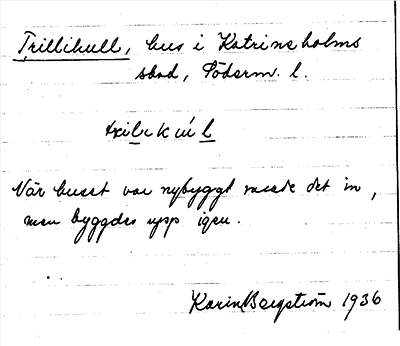 Trillikull, hus i Katrineholms
stad, Söderm. l.
trilikúl
När huset var nybyggt rasade det in,
men byggdes upp igen.
Karin Bergström 1936